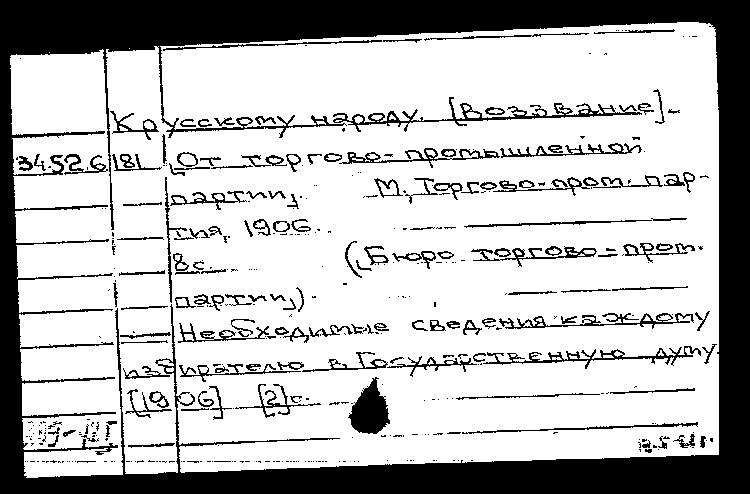 К русскому народу. [Воззвание]-
34526 181 От торгово-промышленной
партии,. М, Торгово-пром. пар-
тия, 1906.
8с. (Бюро торгово-пром.
партии).
Необходимые сведения каждому
избирателю в Государственную думу.
[1906] [2]с.